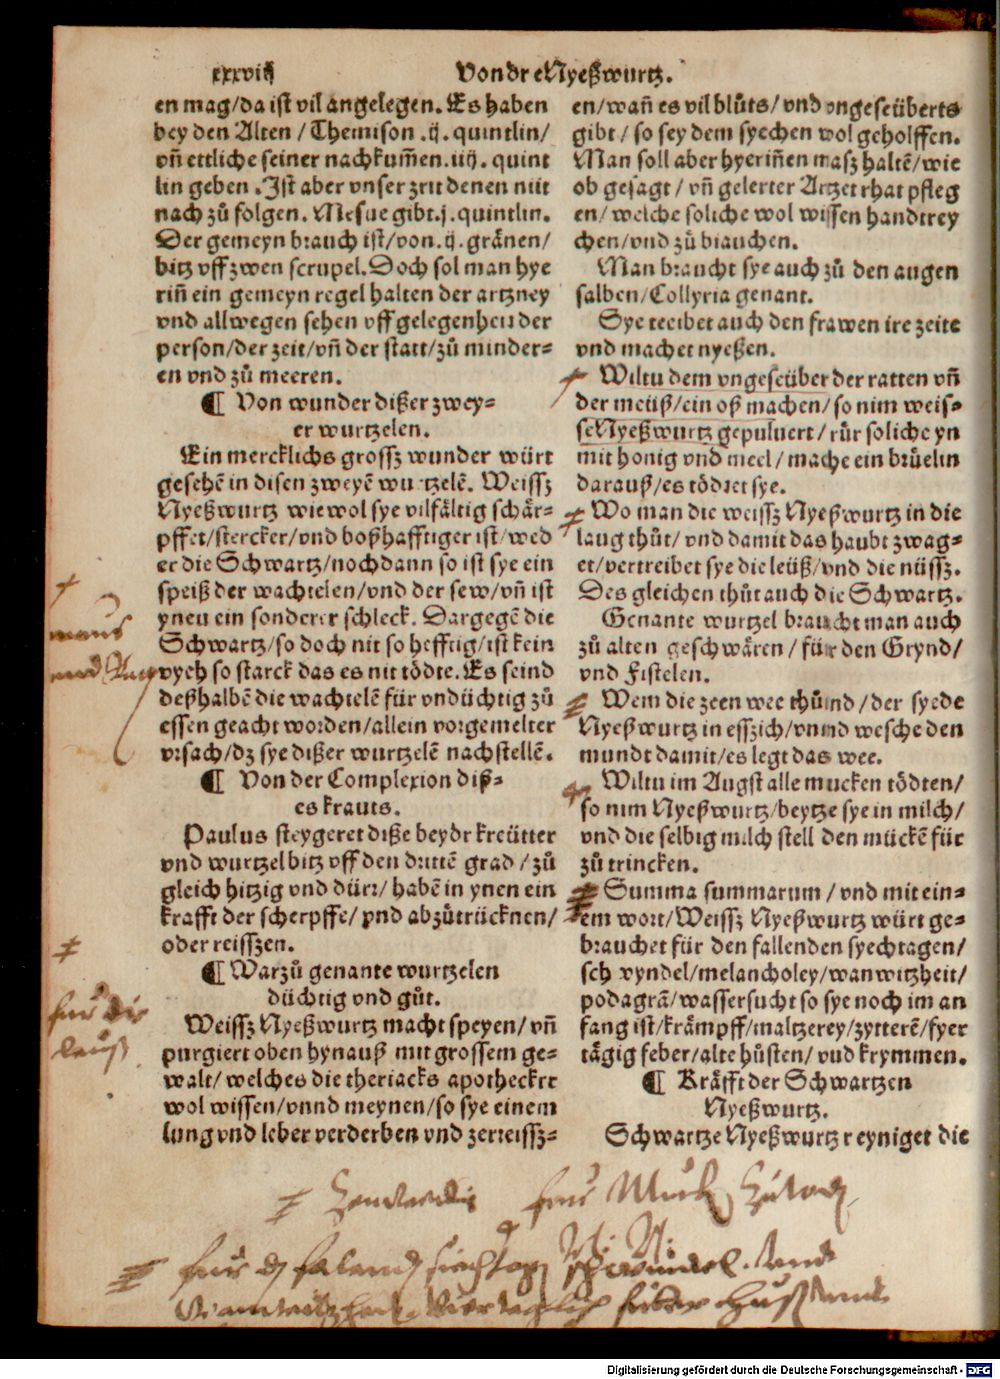 xxxviij
Vondre Nyeßwurtz.
en mag/da ist vil angelegen. Es haben
bey den Alten / Themison .ij. quintlin/
vñ ettliche seiner nachkum̃en.iiij. quint
lin geben .Ist aber vnser zeit denen nüt
nach zů folgen. Mesue gibt.j.quintlin.
Der gemeyn brauch ist/von.ij.gränen/
bitz vff zwen scrupel.Doch sol man hye
riñ ein gemeyn regel halten der artzney
vnd allwegen sehen vff gelegenheit der
person/der zeit/vñ der statt/zů minder=
en vnd zů meeren.
¶ Von wunder dißer zwey=
er wurtzelen.
Ein mercklichs grossz wunder würt
gesehẽ in disen zweyẽ wurtzelẽ. Weissz
Nyeßwurtz wiewol sye vilfältig schär=
pffet/stercker/vnd boßhafftiger ist/wed
er die Schwartz/nochdann so ist sye ein
speiß der wachtelen/vnd der sew/vñ ist
ynen ein sonderer schleck. Dargegẽ die
Schwartz/so doch nit so hefftig/ist kein
vych so starck das es nit tödte.Es seind
deßhalbẽ die wachtelẽ für vndüchtig zů
essen geacht worden/allein vorgemelter
vrsach/dz sye dißer wurtzelẽ nachstellẽ.
¶ Von der Complexion diß=
es krauts.
Paulus steygeret diße beyde kreütter
vnd wurtzel bitz vff den drittẽ grad / zů
gleich hitzig vnd dürr/ habẽ in ynen ein
krafft der scherpffe/ vnd abzůtrücknen/
oder reisszen.
¶ Warzů genante wurtzelen
düchtig vnd gůt.
Weissz Nyeßwurtz macht speyen/ vñ
purgiert oben hynauß mit grossem ge=
walt/ welches die theriacks apothecker
wol wissen/vnnd meynen/so sye einem
lung vnd leber verderben vnd zerreissz=
en/wañ es vil blůts/ vnd vngeseüberts
gibt / so sey dem syechen wol geholffen.
Man soll aber hyeriñen massz haltẽ/wie
ob gesagt / vñ gelerter Artzet rhat pfleg
en/ welche soliche wol wissen handtrey
chen/vnd zů brauchen.
Man braucht sye auch zů den augen
salben/Collyria genant.
Sye treibet auch den frawen ire zeite
vnd machet nyeßen.
Wiltu dem vngeseüber der ratten vñ
der meüß/ein oß machen/so nim weis=
se Nyeßwurtz gepuluert/ rür soliche yn
mit honig vnd meel/ mache ein brüelin
darauß/es tödtet sye.
Wo man die weissz Nyeßwurtz in die
laug thůt/ vnd damit das haubt zwag=
et/vertreibet sye die leüß/vnd die nüssz.
Des gleichen thůt auch die Schwartz.
Genante wurtzel braucht man auch
zů alten geschwären / für den Grynd/
vnd Fistelen.
Wem die zeen wee thůnd /der syede
Nyeßwurtz in esszich/vnnd wesche den
mundt damit/es legt das wee.
Wiltu im Augst alle mucken tödten/
so nim Nyeßwurtz/beytze sye in milch/
vnd die selbig milch stell den mückẽ für
zů trincken.
Summa summarum / vnd mit ein=
em wort/Weissz Nyeßwurtz würt ge=
brauchet für den fallenden syechtagen/
schwyndel/melancholey/wanwitzheit/
podagrã/wassersucht so sye noch im an
fang ist/krämpff/maltzerey/zytterẽ/fyer
tägig feber/alte hůsten/ vnd krymmen.
¶ Kräfft der Schwartzen
Nyeßwurtz.
Schwartze Nyeßwurtz reyniget die
maus
und
fur die
leuß
fur Muck
fur
Digitalisierung gefördert durch die Deutsche Forschungsgemeinschaft - DFG